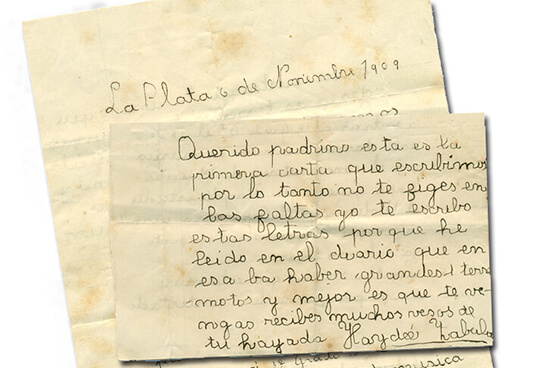 La Plata 6 de Noviembre 1909
Querido padrino esta es la
primera carta que escribimos
por lo tanto no te figes en
las faltas yo te escribo
estas letras por que he
leido en el diario que en
esa ba haber grandes terre
motos y mejor es que te ve-
ngas recibes muchos vesos de
tu hayada Haydeé
musica